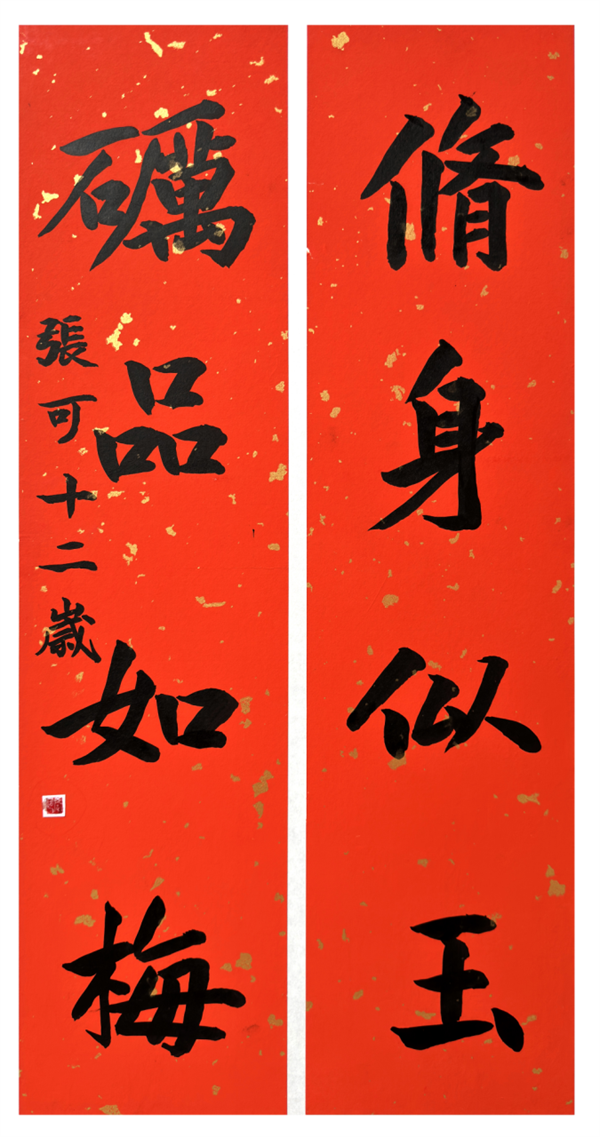 脩身似玉
礪品如梅
張可十二歲